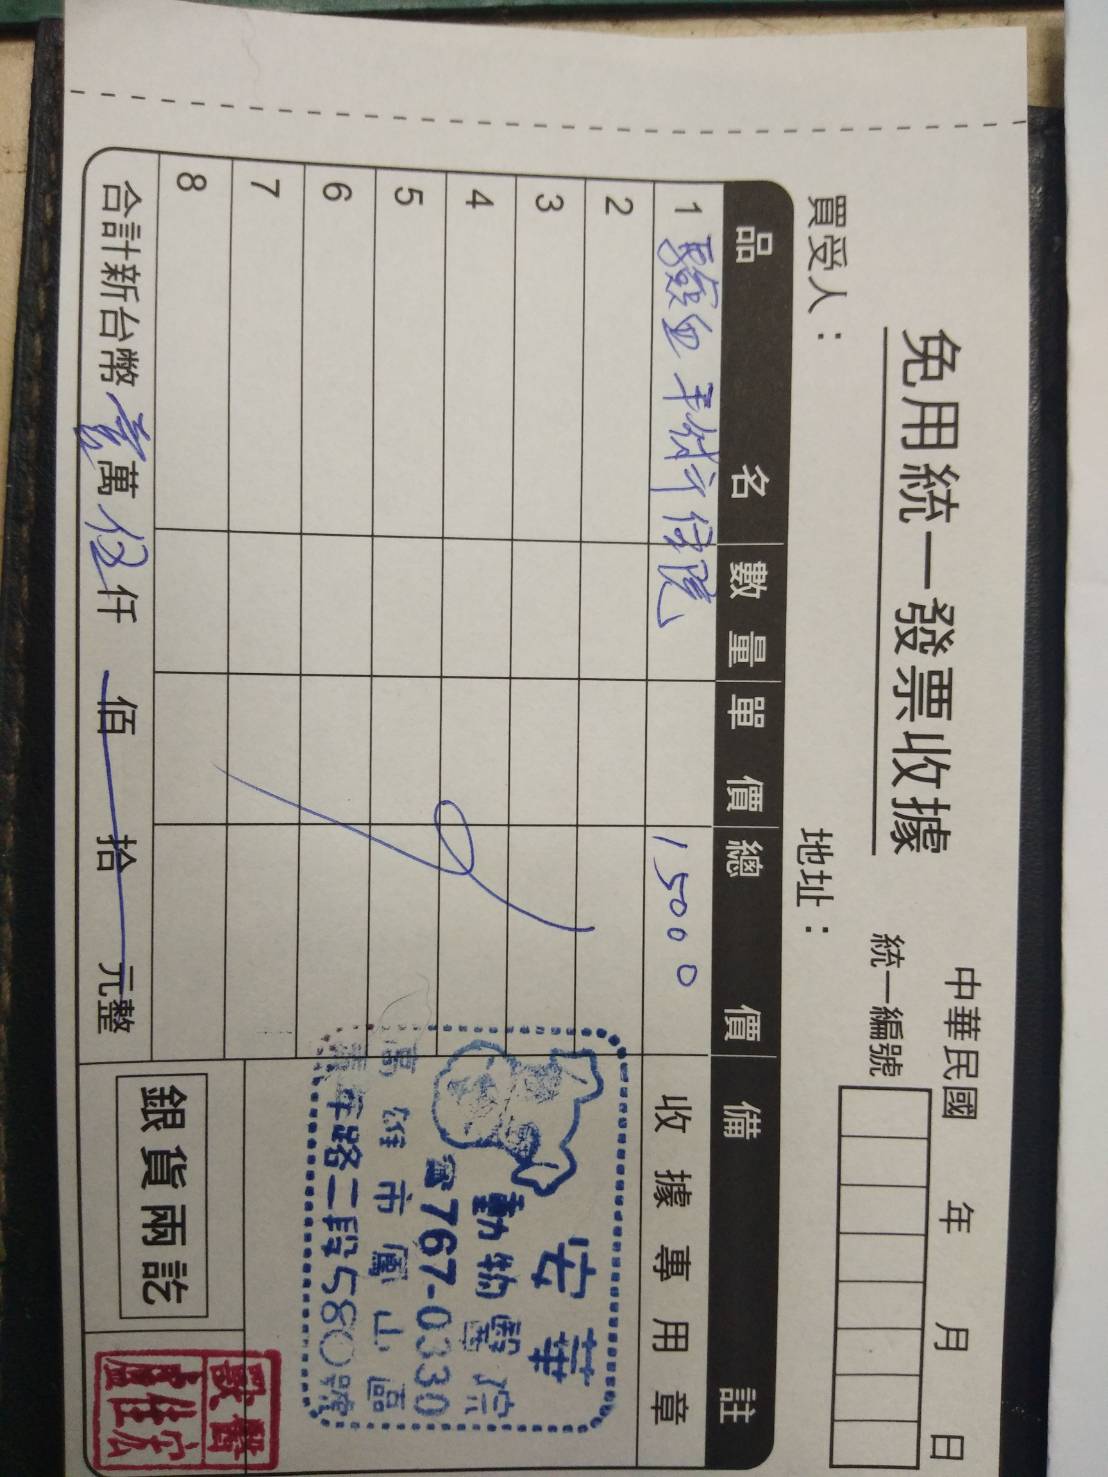 免用統一發票收據
中華民國 年 月 日
統一編號
買受人： 地址：
品名 數量 單價 總價 備註
1 驗血 手術 住院 15000 收據專用章
2
3
4
5
6
7
8
安華
動物醫院
☎767-0330
高雄市鳳山區
青年路二段580號
合計新台幣壹萬伍仟 佰 拾 元整
銀貨兩訖
獸醫
盧佳宏